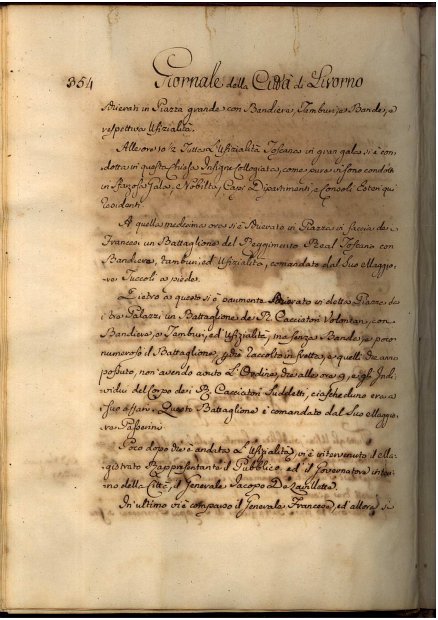 354 Giornale della Città di Livorno
Schierati in Piazza grande con Bandiera, Tamburi, e Bande, e
respettiva Ufizialità.
Alle ore 10 1/2 Tutta L'Ufizialità Toscana in gran gala si è con-
dotta in questa Chiesa Insigne Collegiata, come pure vi sono condotti
in Sfarzosa Gala, e Nobiltà, Capi Dipartimenti, e Consoli Esteri qui
Residenti.
A quella medesima ora si è Schierato in Piazza in faccia ai
Francesi un Battaglione del Reggimento Real Toscano con
Bandiera, Tamburi, ed Ufizialità, comandato dal Suo Maggio-
re Tuccoli a piede.
Dietro a questo si è parimente Schierato in detta Piazza da
tre Palazzi un Battaglione de R. Cacciatori Volontari, con
Bandiera, e Tamburi, ed Ufizialità, ma senza Bande, e poco
numeroso il Battaglione, perchè raccolto in fretta, e quelli che anno
possuto, non avendo avuto L'Ordine, che alle ore 9, e gli Indi-
vidui del Corpo dei R. Cacciatori Suddetti, ciascheduno era a
suo affare. Questo Battaglione è comandato dal Suo Maggio-
re Passerini
Poco dopo che è andata L'Ufizialità, vi è intervenuto il Ma-
gistrato Rappresentante il Pubblico, ed il Governatore inter-
ino della Città, il Generale Jacopo De Lavillette.
In ultimo vi è comparso il Generale Francese, ed allora si